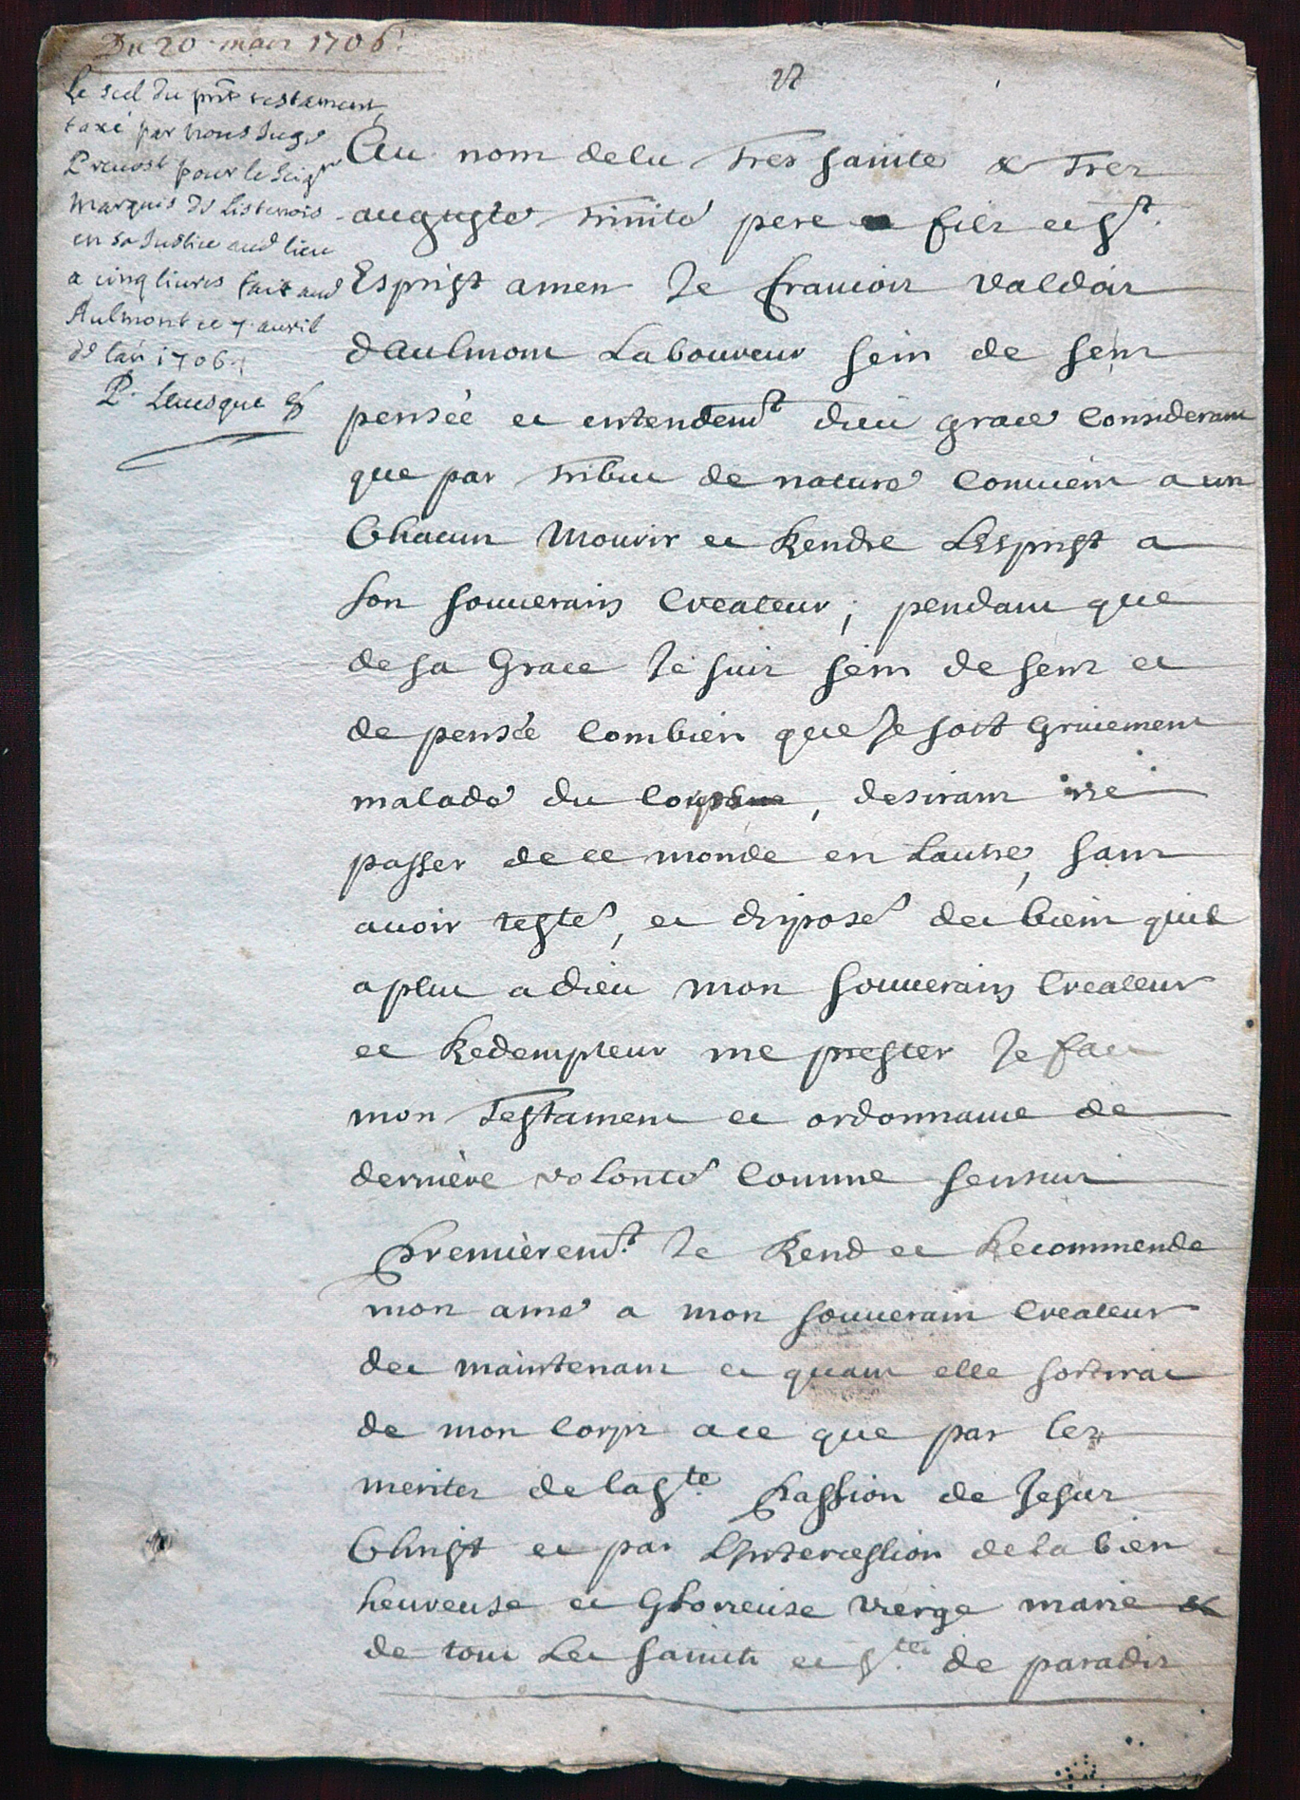 Du 20 mars 1706.
Le scel du pnt testament
taxé par nous Juge
Prevost pour le Seigr
Marquis de Listenois
en sa Justice aud lieu
a cinq livres fait aud
Aulmont ce 7 avril
de lan 1706
P. Levesque
Au nom de la Tres sainte & Tres
auguste trinité pere fils et St.
Esprist amen Je francois valdois
daulmont Laboureur sein de sens
pensée et entendemt dieu grace Considerant
que par tribut de nature Convient a un
Chacun Mourir et Rendre LEsprist a
son souverains Createur, pendant que
de sa Grace Je suis sein de sens et
de pensée Combien que Je soit Griuement
malade du Corps, desirant ne
passer de ce monde en Lautre, sans
avoir testé, et disposé des biens quil
a plut a dieu mon souverains Createur
et Redempteur me prester Je fais
mon Testament et ordonnance de
dernière volonté Comme sensuit
Premièremt. Je Rend et Recommende
mon ame a mon souverain Createur
des maintenant et quant elle sortirat
de mon Corps a ce que par les
merites de la Ste. Passion de Jesus
Christ et par LIntercession de la bien
heureuse et Glorieuse vierge marie &
de tous Les saincts et Stes de paradis